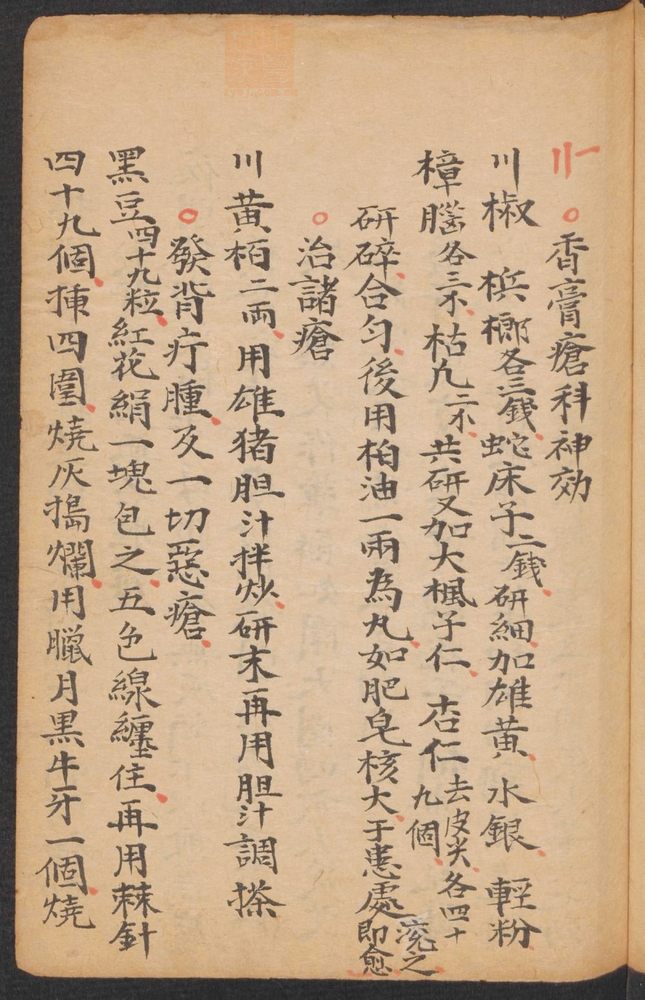 香膏瘡科神効
川椒 梹榔各三錢蛇床子二錢研細加雄黃水銀 輕粉
樟腦各三不枯凡二不共研又加大楓子仁 杏仁去皮尖各四十九個
研碎合匀後用柏油一兩為丸如肥皂核大于患處滾之即愈
治諸瘡
川黃栢二兩用雄猪胆汁拌炒研末再用胆汁調搽
發背疔腫及一切惡瘡
黑豆四十九粒紅花絹一塊包之五色線纏住再用棘針
四十九個揷四圍燒灰搗爛用臘月黑牛牙一個燒